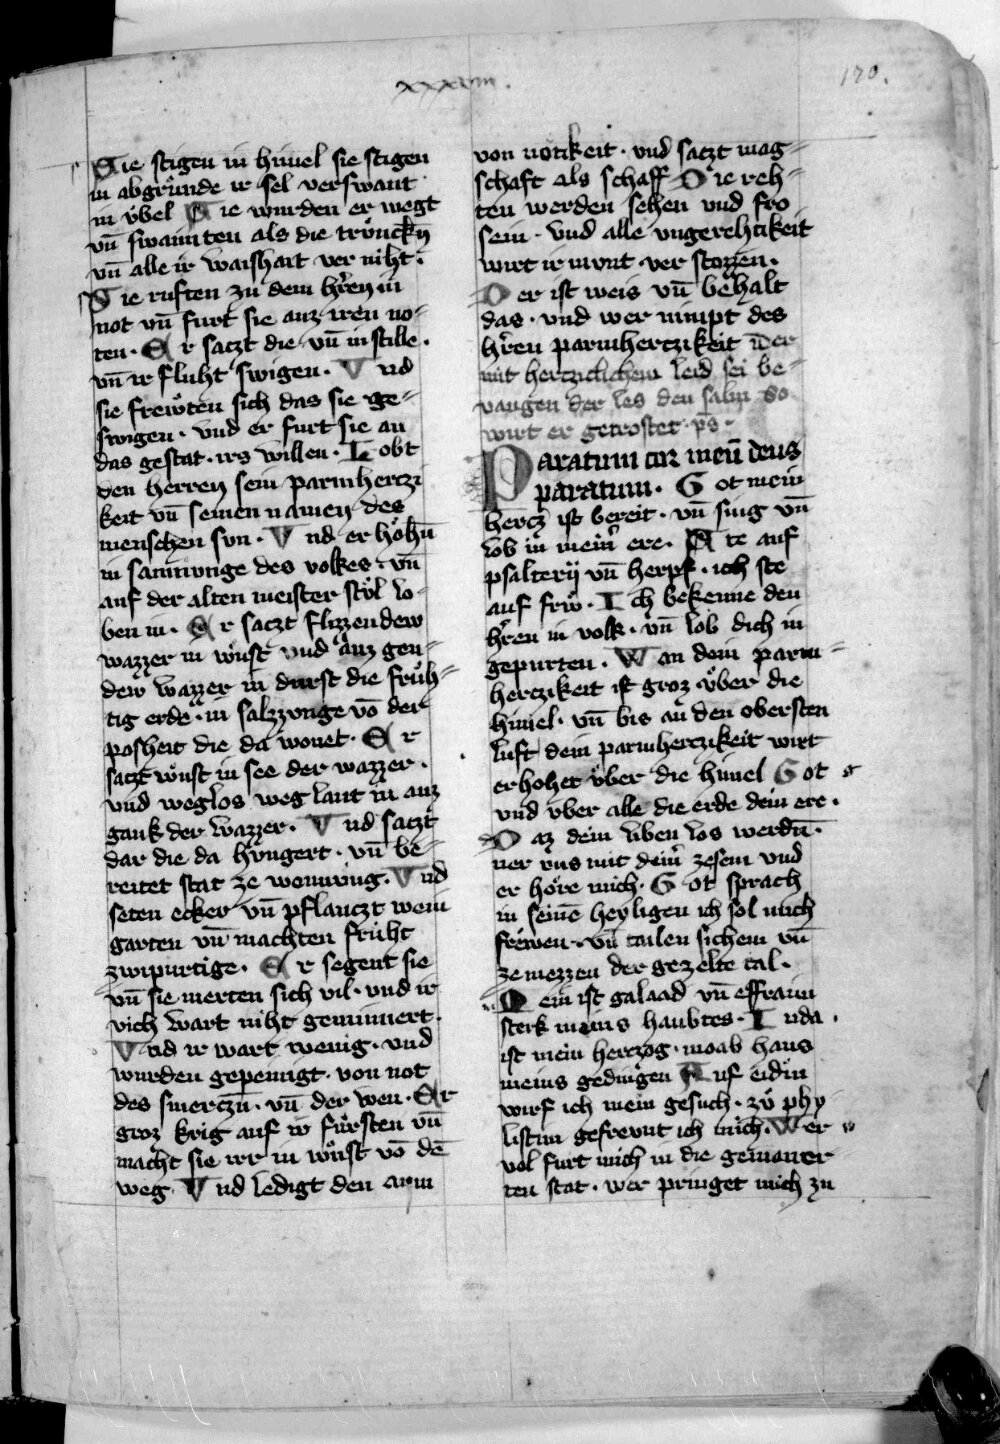 xxxviii.
170.
Sie stigen in himel sie stigen
in abgrůnde ir sel verswant
in v̊bel Sie wurden er wegt
vn̄ swaimten als die trůnckn̄
vn̄ alle ir waishait ver niht.
Sie ruften zu dem hr̄en in
not vn̄ furt sie auz iren no-
ten. Er saczt die vn̄ in stille.
vn̄ ir fluht swigen. Vnd
sie frewten sich das sie ge-
swigen. vnd er furt sie an
das gestat. irs willen. Lobt
den herren sein parmherczi
keit vn̄ seinen namen des
menschen svn. Vnd er hohn̄
in samnvnge des volkes. vn̄
auf der alten meister stůl lo-
ben in. Er saczt flizzendew
wazzer in wůst vnd auz gen-
dew wazzer in durst die frůh-
tig erde. in salzzvnge vō der
posheit die da wonet. Er
saczt wůst in see der wazzer.
vnd weglos weg lant in auz
gank der wazzer. Vnd saczt
dar die da hvngert. vn̄ be-
reitet stat ze wonvng. Vnd
seten ecker vn̄ pflanczt wein
garten vn̄ machten fruht
zwipurtige. Er segent sie
vn̄ sie merten sich vil. vnd ir
vich wart niht geminnert.
Vnd ir wart wenig. vnd
wurden gepeinigt. von not
des smerczn̄. vn̄ der wen. Er
groz krig auf ir fůrsten vn̄
macht sie irr in wůst vō dē
weg Vnd ledigt den arm
von notikeit. vnd saczt mag-
schaft als schaff Die reh-
ten werden sehen vnd fro
sein. vnd alle vngerehtikeit
wirt ir mvnt ver stozzen.
Der ist weis vn̄ behalt
das. vnd wer nimpt des
hr̄en parmherczikeit wer
mit herczlichem leid sei be-
vangen der les den salm so
wirt er getrostet. ps.
Paratum cor meū deus
paratum. Got mein
hercz ist bereit. vn̄ sing vn̄
lob in mein̄ ere. Ste auf
psalterij vn̄ herpf. ich ste
auf frẘ. Ich bekenne den
hr̄en in volk. vn̄ lob dich in
gepurten. Wan dein parm-
herczikeit ist groz v̊ber die
himel. vn̄ bis an den obersten
luft dein parmherczikeit wirt
erhohet v̊ber die himel Got
vnd vber alle die erde dein ere.
Daz dein liben los werdn̄.
ner vns mit dein̄ zesem vnd
er hore mich. Got sprach
in seinē heyligen ich sol mich
frewen. vn̄ tailen sichem vn̄
ze mezzen der gezelte tal.
Mein ist galaad vn̄ effraim
sterk meins haubtes. Iuda.
ist mein herczog. moab haus
meins gedingen Auf eidm
wirf ich mein gesuch. zů phy-
listim gefrevnt ich mich. Wer
vol furt mich in die gemauer-
ten stat. wer pringet mich zu